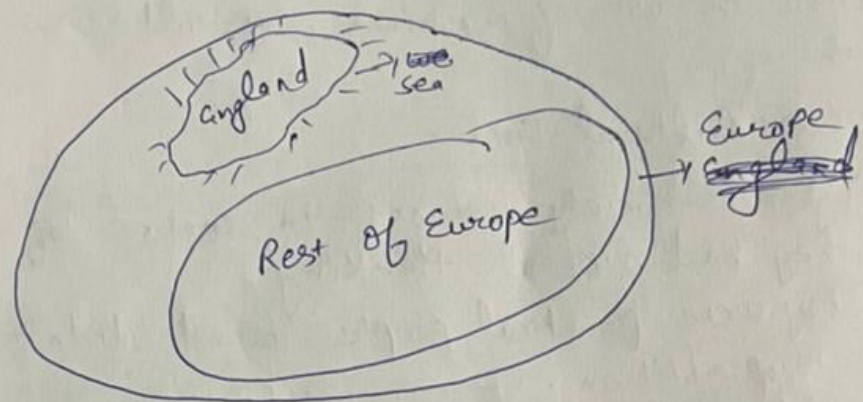 England
sea
Europe
Rest of Europe